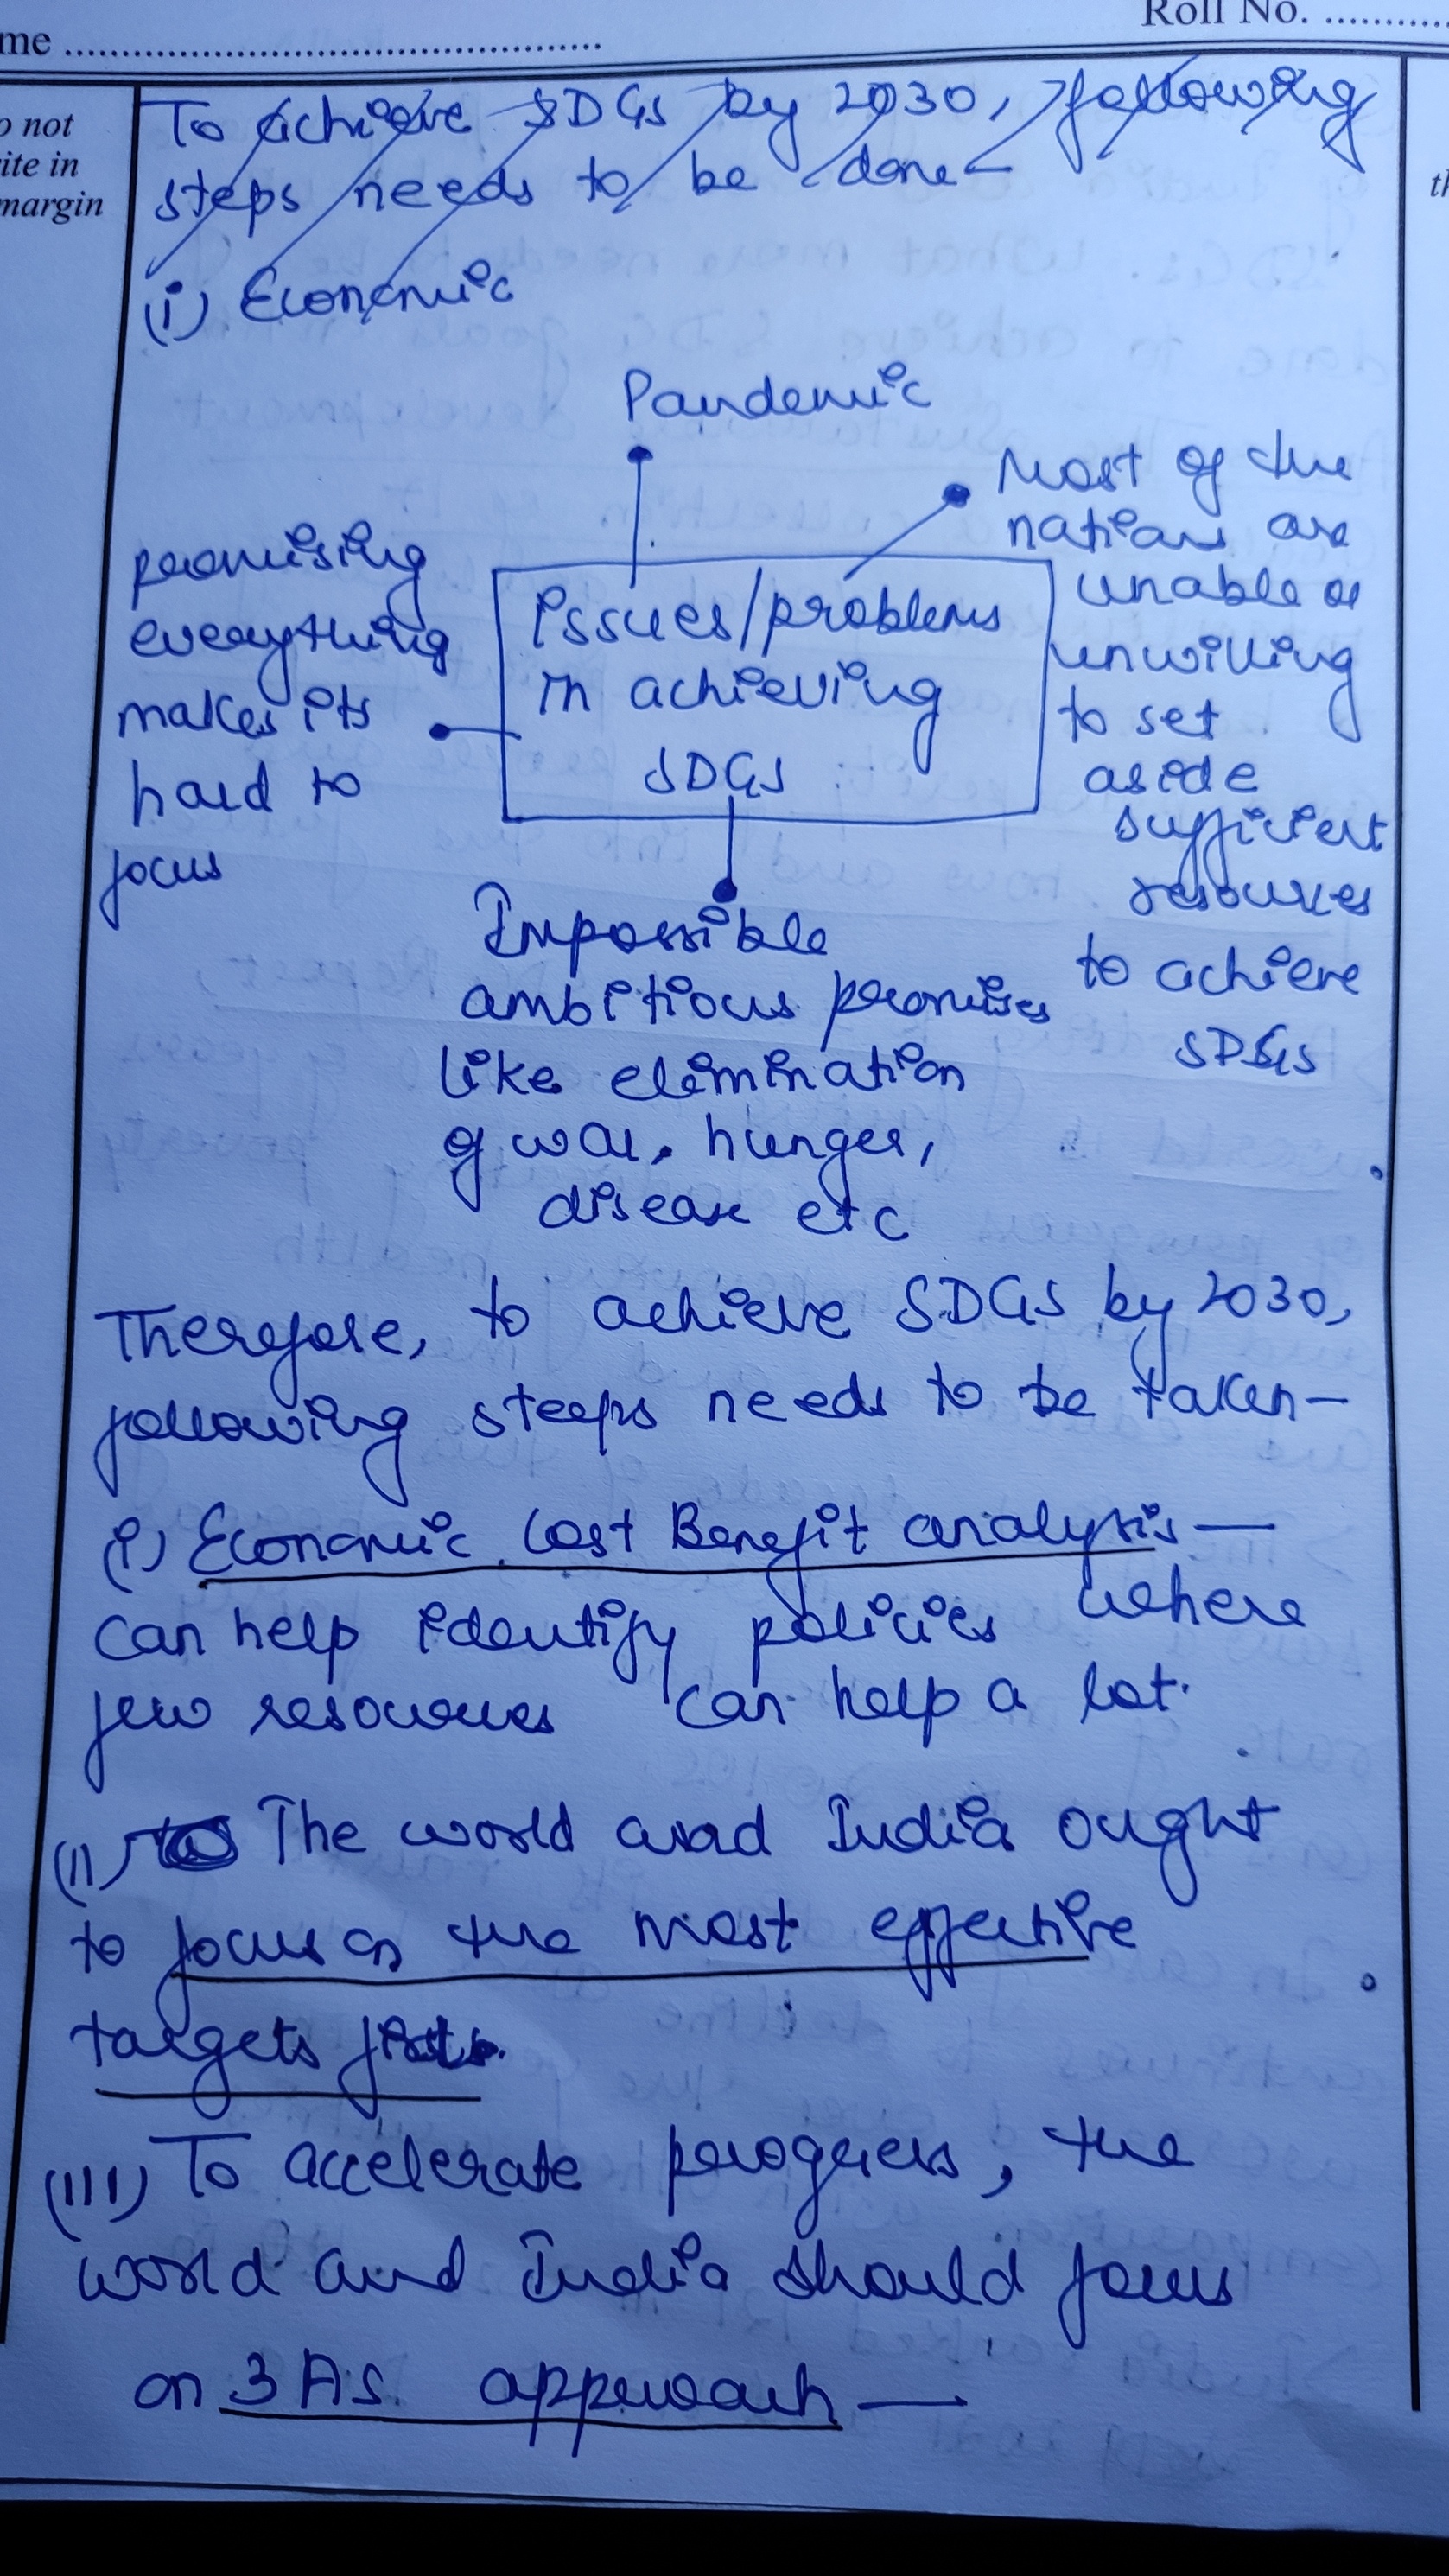 me ..........................................
Roll No. ............
o not
ite in
margin
th
To achieve SDGs by 2030, following
steps needs to be done –
(i) Economic
Pandemic
Most of the
nations are
unable or
unwilling
to set
aside
sufficient
resources
to achieve
SDGs
promising
everything
makes its
hard to
focus
Issues/problems
in achieving
SDGs
Impossible
ambitious promises
like elimination
of war, hunger,
disease etc
Therefore, to achieve SDGs by 2030,
following steeps needs to be taken –
(i) Economic Cost Benefit analysis —
can help identify policies where
few resources can help a lot.
(ii) The world and India ought
to focus on the most effective
targets first.
(iii) To accelerate progress, the
world and India should focus
on 3 As approach —